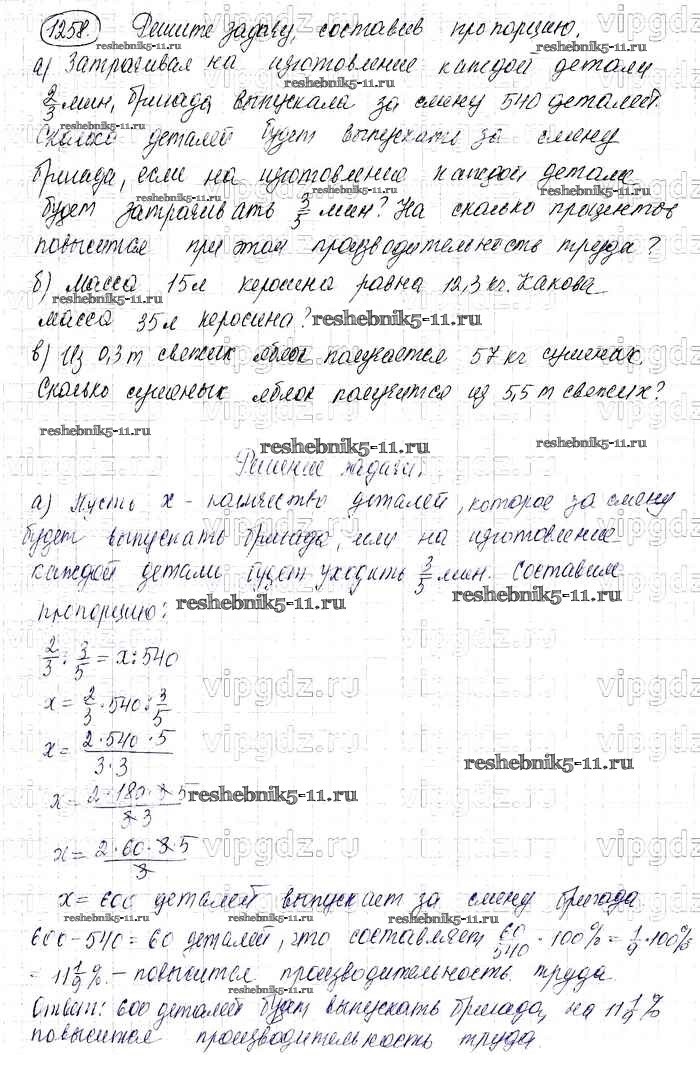 1258. Решите задачу, составив пропорцию.
а) Затрачивая на изготовление каждой детали
2/3 мин, бригада выпускала за смену 540 деталей.
Сколько деталей будет выпускать за смену
бригада, если на изготовление каждой детали
будет затрачивать 3/5 мин? На сколько процентов
повысится при этом производительность труда?
б) Масса 15 л керосина равна 12,3 кг. Какова
масса 35 л керосина?
в) Из 0,3 т свежих яблок получается 57 кг сушеных.
Сколько сушеных яблок получится из 5,5 т свежих?
reshebnik5-11.ru
Решение задачи
а) Пусть x - количество деталей, которое за смену
будет выпускать бригада, или на изготовление
каждой детали будет уходить 3/5 мин. Составим
пропорцию:
2/3 : 3/5 = x : 540
x = 2/3 · 540 : 3/5
x = 2·540·5 / 3·3
x = 2·180·3·5 / 3·3
x = 2·60·3·5 / 3
x = 600 деталей выпускает за смену бригада
600 - 540 = 60 деталей, это составляет 60/540 · 100% = 1/9 · 100%
= 11 1/9 % - повысится производительность труда
Ответ: 600 деталей будет выпускать бригада, на 11 1/9 %
повысится производительность труда.
vipgdz.ru